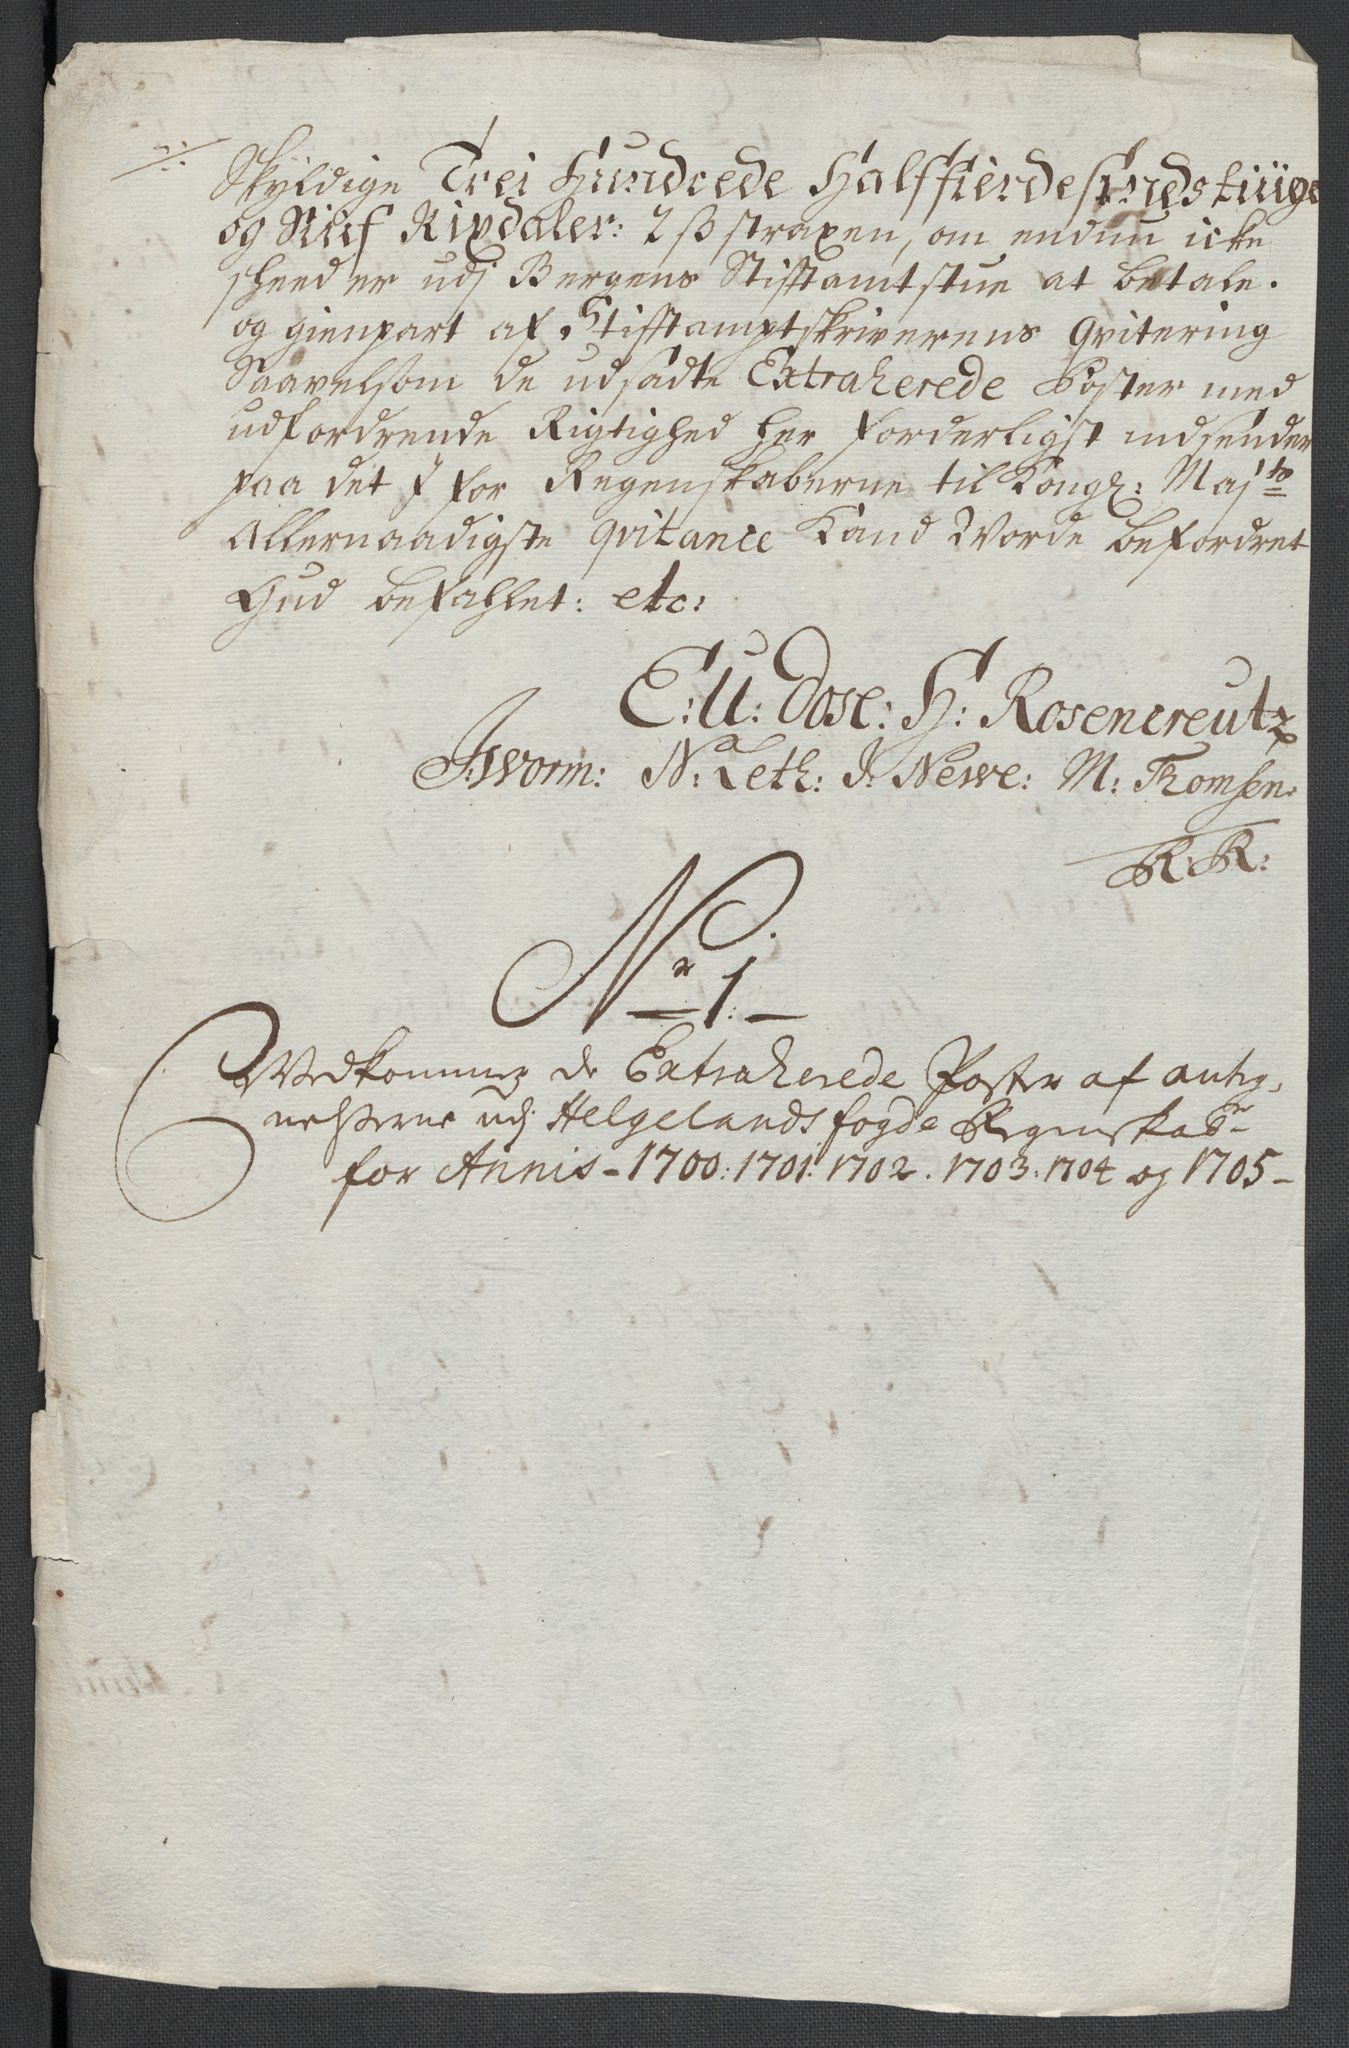 Skyldige Trei Hundrede Halffierdesindstiuge
og Niif Rixdaler: 2 ß straxen, om endnu icke
skeed er udj Bergens Stifftamtstue at betale.
og gienpart af Stifftamptskriverens Qvitering
Saavelsom de udsadte Extraherede Poster med
udfordrende Rigtighed her forderligst indsender
paa det I for Regenskaberne til Kongl: Maj:ts
Allernaadigste qvitance Kand Vorde befordret
Gud befahlet: etc:
E: U: Dose: H: Rosencreutz
J: Worm: N: Leth: J: Newe: M: Thomsen:
R: R:
Nr 1:
Vedkommer de Extraherede Poster af anteg,
nelserne udj Helgelands fogde Regenskaber
for Annis - 1700: 1701: 1702. 1703: 1704 og 1705 -